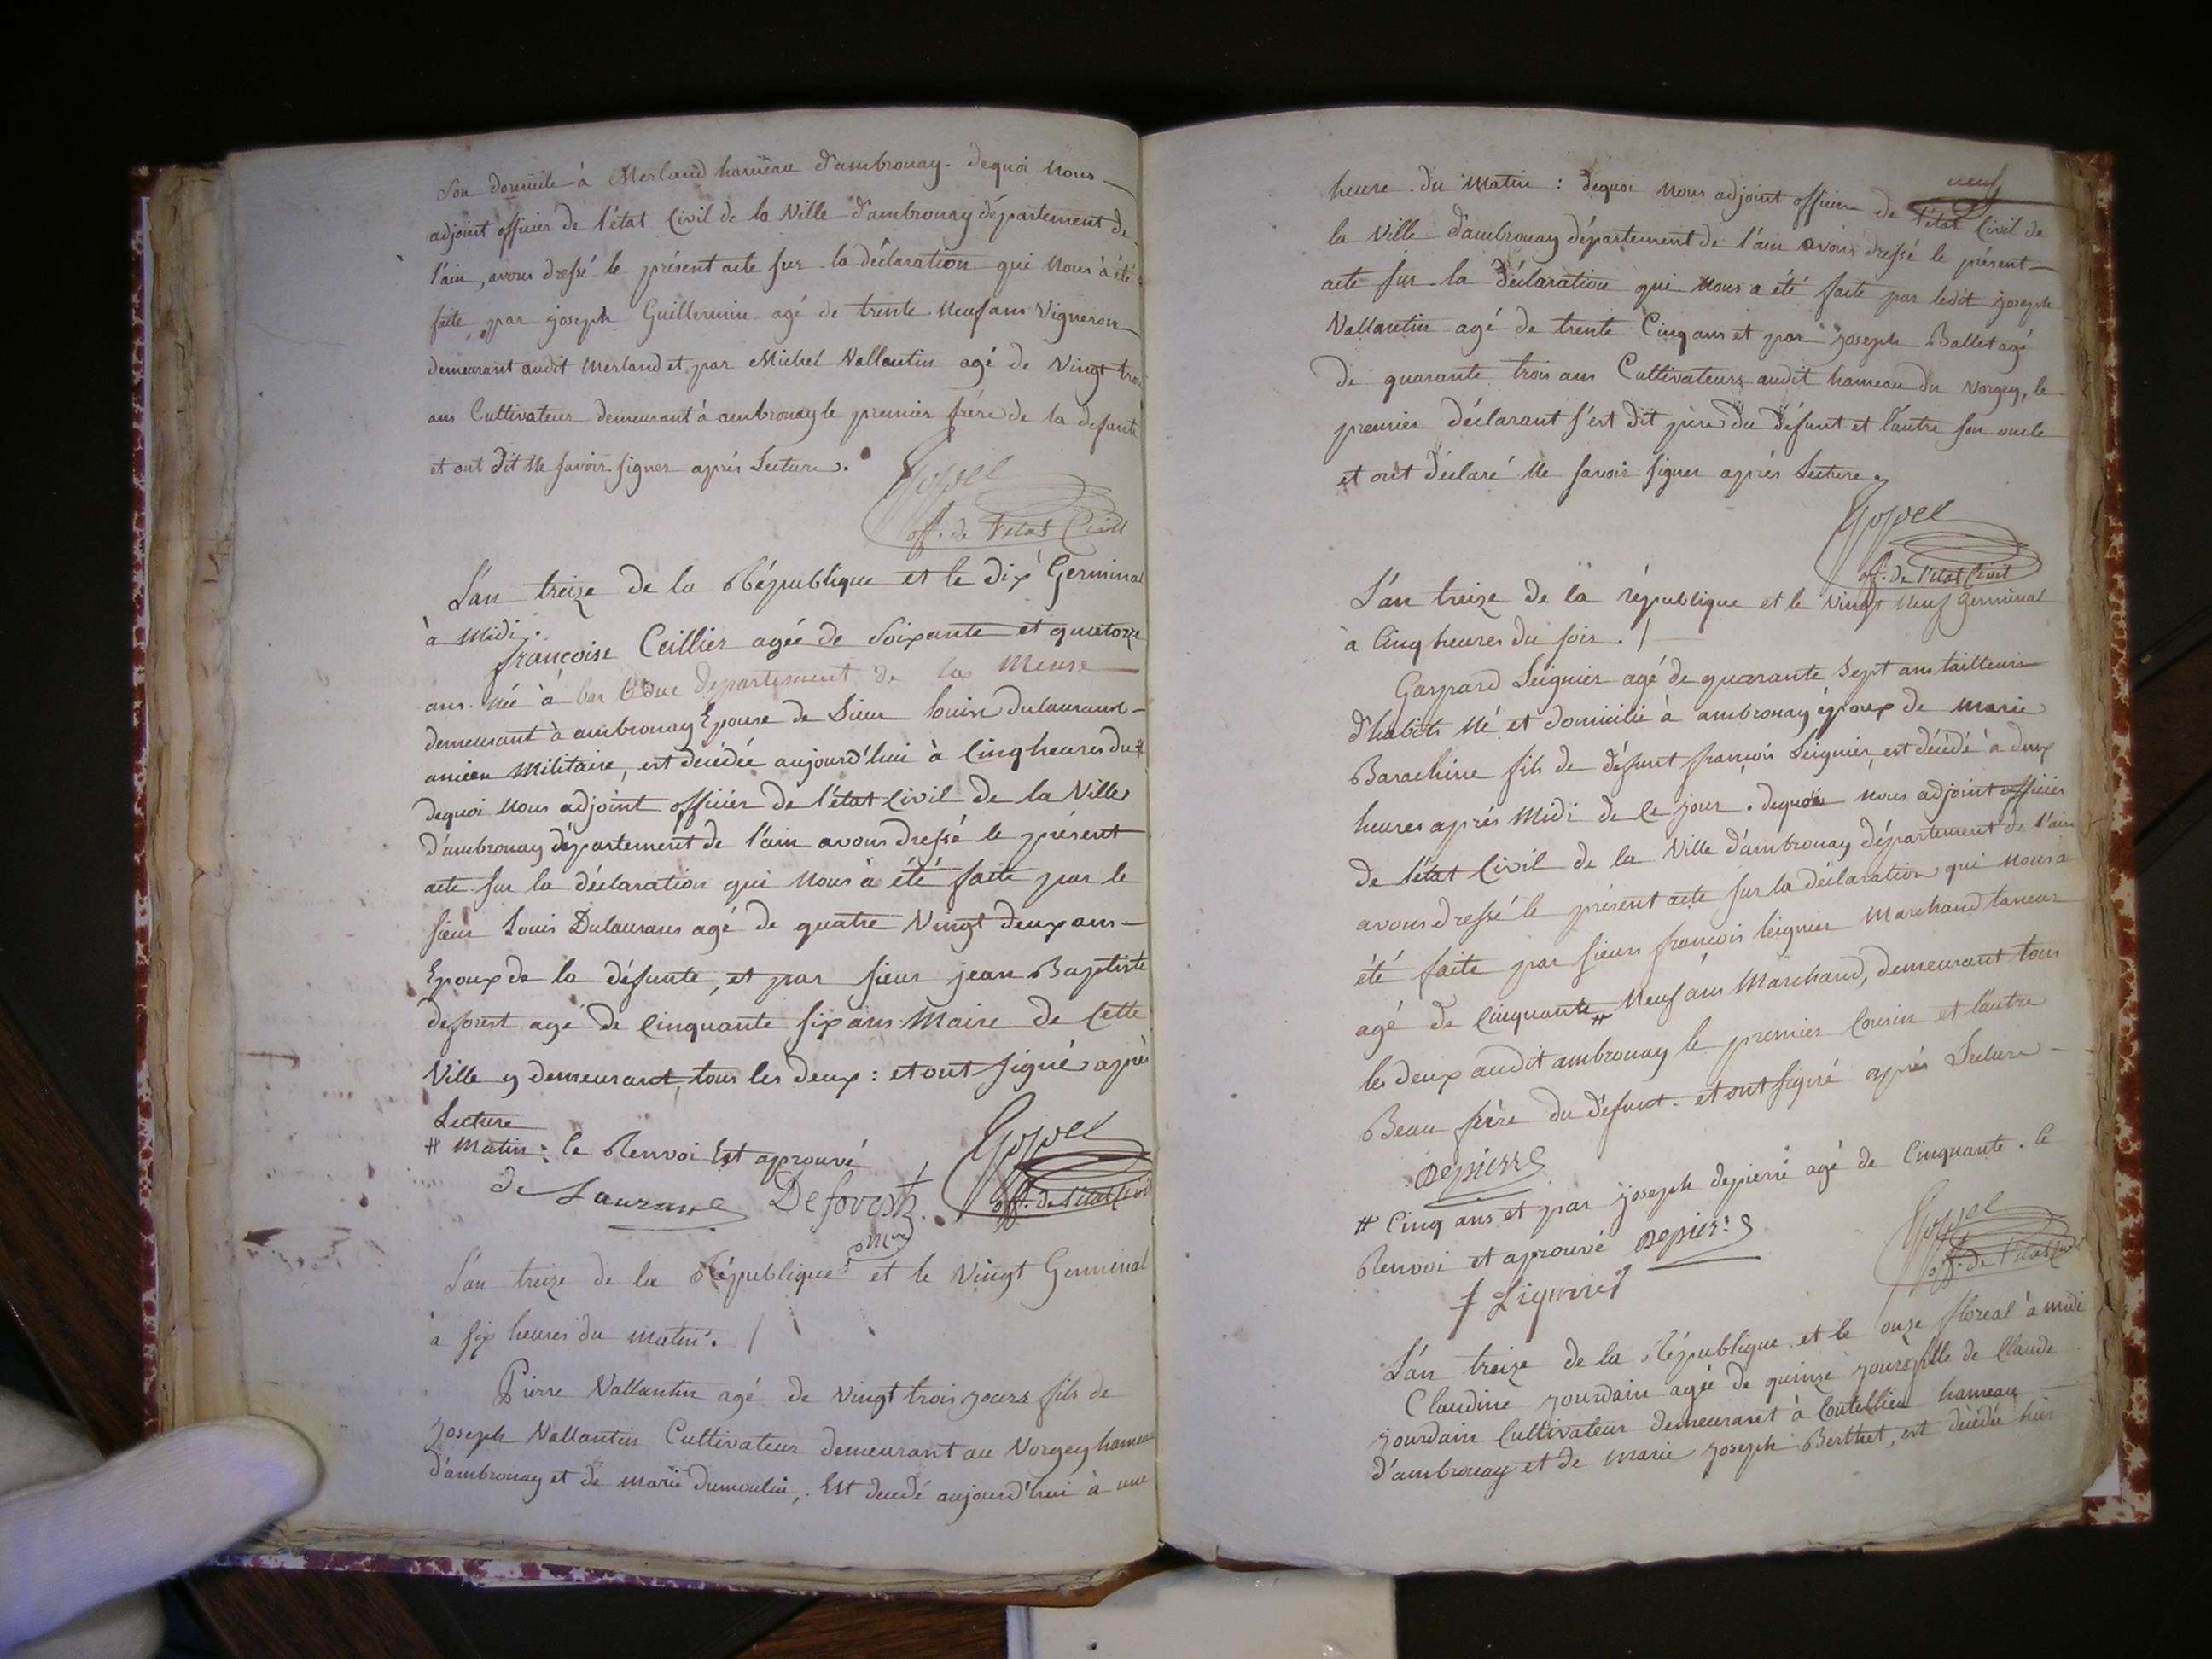 Son domicile à Merland hameau d'ambronay. dequoi Nous
adjoint officier de l'état Civil de la Ville d'ambronay département de
l'ain, avons dressé le présent acte sur la déclaration qui Nous à été
faite, par joseph Guillermin agé de trente Neuf ans Vigneron
demeurant audit Merland et par Michel Vallantin agé de Vingt trois
ans Cultivateur demeurant à ambronay le premier frère de la defunte
et ont dit Ne savoir signer aprés Lecture.
Goyvel
off. de l'état Civil
L'an treize de la République et le dix Germinal
à Midi.
françoise Ceillier agée de Soixante et quatorze
ans. Née à bar le duc departement de la Meuse
demeurant à ambronay Epouse de Sieur louis Dulaurans
ancien Militaire, est decédée aujourd'hui à Cinq heures du #
dequoi Nous adjoint officier de l'état Civil de la Ville
d'ambronay département de l'ain avons dressé le présent
acte sur la déclaration qui Nous à été faite par le
sieur Louis Dulaurans agé de quatre Vingt deux ans
Epoux de la défunte, et par sieur jean Baptiste
deforest agé de Cinquante six ans Maire de Cette
Ville y demeurant, tous les deux : et ont signé après
Lecture
# Matin : le Renvoi Est aprouvé
de Laurans Deforest Goyvel
Mre off. de l'état Civil
L'an treize de la République et le Vingt Germinal
à six heures du matin. /
Pierre Vallantin agé de Vingt trois jours fils de
joseph Vallantin Cultivateur demeurant au Vorgey hameau
d'ambronay et de marie dumoulin, Est decedé aujourd'hui à une
heure du Matin : dequoi Nous adjoint officier de l'état Civil de
la Ville d'ambronay département de l'ain avons dressé le présent
acte sur la Déclaration qui Nous a été faite par ledit joseph
Vallantin agé de trente Cinq ans et par joseph Ballet agé
de quarante trois ans Cultivateurs audit hameau du Vorgey, le
premier déclarant s'est dit père du défunt et l'autre son oncle
et ont déclaré Ne savoir signer aprés Lecture.
Goyvel
off. de l'état Civil
L'an treize de la république et le Vingt Neuf Germinal
à Cinq heures du soir. /
Gaspard Leignier agé de quarante Sept ans tailleur
d'habits Né et domicilié à ambronay époux de marie
Barachine fils de défunt françois Leignier, est décédé à deux
heures aprés Midi de Ce jour. dequoi nous adjoint officier
de l'état Civil de la Ville d'ambronay département de l'ain
avons dressé le présent acte sur la déclaration qui nous a
été faite par sieurs françois leignier Marchand taneur
agé de Cinquante # Neuf ans Marchand, demeurant tous
les deux audit ambronay le premier Cousin et l'autre
Beau frère du défunt. et ont signé aprés Lecture
Depierre
# Cinq ans et par joseph depierre agé de Cinquante. le
Renvoi et aprouvé Depierre Goyvel
f Lignier off. de l'état Civil
L'an treize de la République et le onze floréal à midi
Claudine jourdain agée de quinze jours fille de Claude
jourdain Cultivateur demeurant à Coutellieu hameau
d'ambronay et de marie joseph Berthet, est décédée hier
neuf